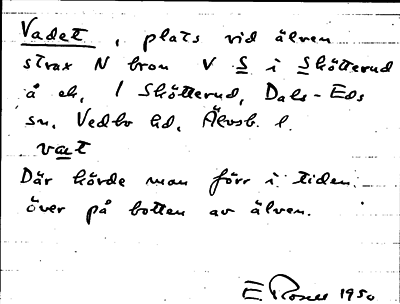 Vadet, plats vid älven
strax N bron V S i Skötterud
å ek, 1 Skötterud, Dals-Eds
sn, Vedbo hd, Älvsb. l.
vat
Där körde man förr i tiden
över på botten av älven.
E Rosell 1950